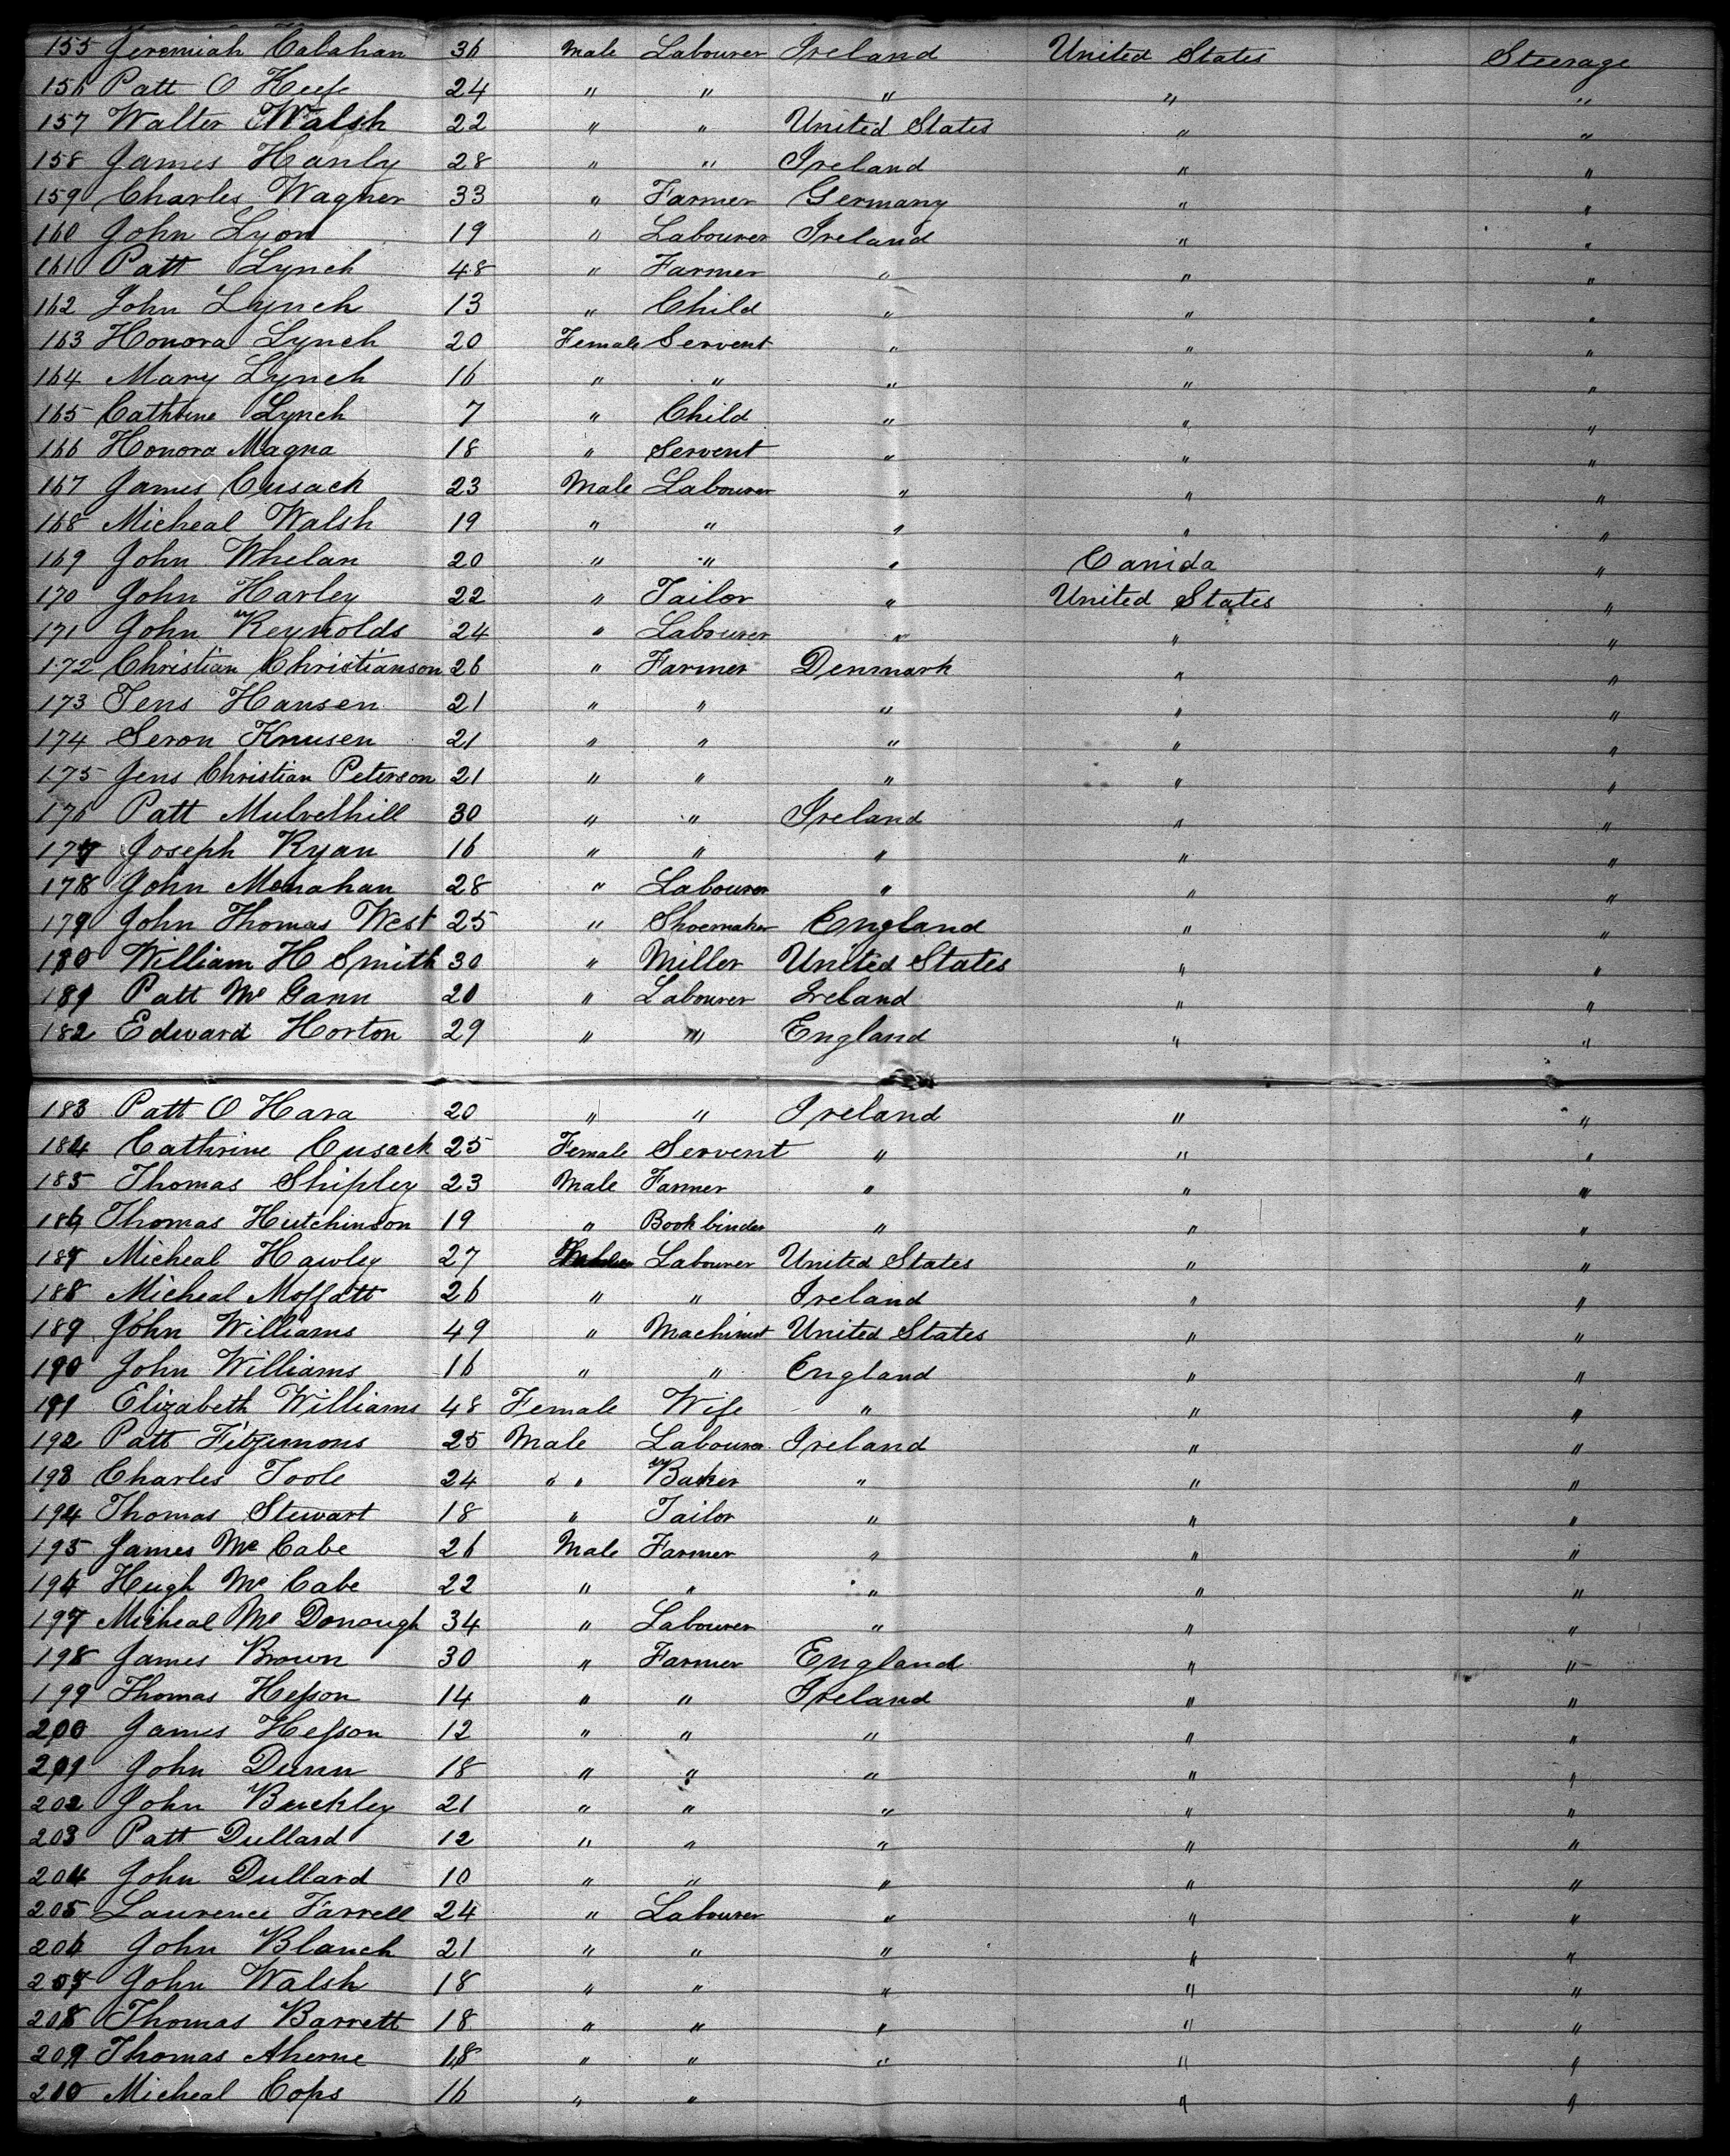 155 Jeremiah Calahan 36 Male Labourer Ireland United States Steerage
156 Patt O Keefe 24 " " " " "
157 Walter Walsh 22 " " United States " "
158 James Hanly 28 " " Ireland " "
159 Charles Wagner 33 " Farmer Germany " "
160 John Lyon 19 " Labourer Ireland " "
161 Patt Lynch 48 " Farmer " " "
162 John Lynch 13 " Child " " "
163 Honora Lynch 20 Female Servent " " "
164 Mary Lynch 16 " " " " "
165 Cathrine Lynch 7 " Child " " "
166 Honora Magna 18 " Servent " " "
167 James Cusack 23 Male Labourer " " "
168 Micheal Walsh 19 " " " " "
169 John Whelan 20 " " " Canida "
170 John Harley 22 " Tailor " United States "
171 John Reynolds 24 " Labourer " " "
172 Christian Christianson 26 " Farmer Denmark " "
173 Jens Hansen 21 " " " " "
174 Seron Knusen 21 " " " " "
175 Jens Christian Peterson 21 " " " " "
176 Patt Mulvelhill 30 " " Ireland " "
177 Joseph Ryan 16 " " " " "
178 John Monahan 28 " Labourer " " "
179 John Thomas West 25 " Shoemaker England " "
180 William H Smith 30 " Miller United States " "
181 Patt Mc Gann 20 " Labourer Ireland " "
182 Edward Horton 29 " " England " "
183 Patt O Hara 20 " " Ireland " "
184 Cathrine Cusack 25 Female Servent " " "
185 Thomas Shipley 23 Male Farmer " " "
186 Thomas Hutchinson 19 " Book binder " " "
187 Micheal Hawley 27 Labourer United States " "
188 Micheal Moffatt 26 " " Ireland " "
189 John Williams 49 " Machinist United States " "
190 John Williams 16 " " England " "
191 Elizabeth Williams 48 Female Wife " " "
192 Patt Fitzimons 25 Male Labourer Ireland " "
193 Charles Toole 24 " " Baker " " "
194 Thomas Stewart 18 " Tailor " " "
195 James Mc Cabe 26 Male Farmer " " "
196 Hugh Mc Cabe 22 " " " " "
197 Micheal Mc Donough 34 " Labourer " " "
198 James Brown 30 " Farmer England " "
199 Thomas Hesson 14 " " Ireland " "
200 James Hesson 12 " " " " "
201 John Dunn 18 " " " " "
202 John Buckley 21 " " " " "
203 Patt Dullard 12 " " " " "
204 John Dullard 10 " " " " "
205 Laurence Farrell 24 " Labourer " " "
206 John Blanch 21 " " " " "
207 John Walsh 18 " " " " "
208 Thomas Barrett 18 " " " " "
209 Thomas Aherne 18 " " " " "
210 Micheal Cops 16 " " " "